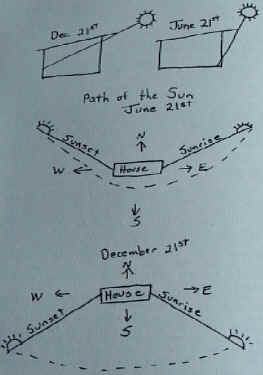 Dec 21st
June 21st
Path of the Sun
June 21st
N
Sunset
Sunrise
W
House
E
S
December 21st
N
W
House
E
Sunset
Sunrise
S